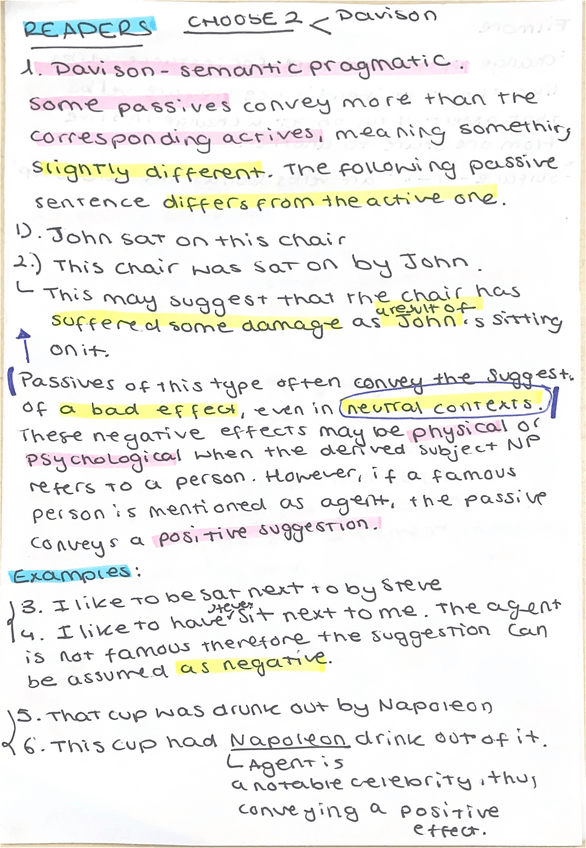 READERS CHOOSE 2 < Davison
1. Davison - semantic pragmatic.
some passives convey more than the
corresponding actives, meaning something
slightly different. The following passive
sentence differs from the active one.
1). John sat on this chair
2.) This chair was sat on by John.
This may suggest that the chair has
suffered some damage as a result of John's sitting
on it.
Passives of this type often convey the suggest.
of a bad effect, even in neutral contexts.
These negative effects may be physical or
psychological when the derived subject NP
refers to a person. However, if a famous
person is mentioned as agent, the passive
conveys a positive suggestion.
Examples:
3. I like to be sat next to by Steve
4. I like to have Steve sit next to me. The agent
is not famous therefore the suggestion can
be assumed as negative.
5. That cup was drunk out by Napoleon
6. This cup had Napoleon drink out of it.
Agent is
a notable celebrity, thus
conveying a positive
effect.